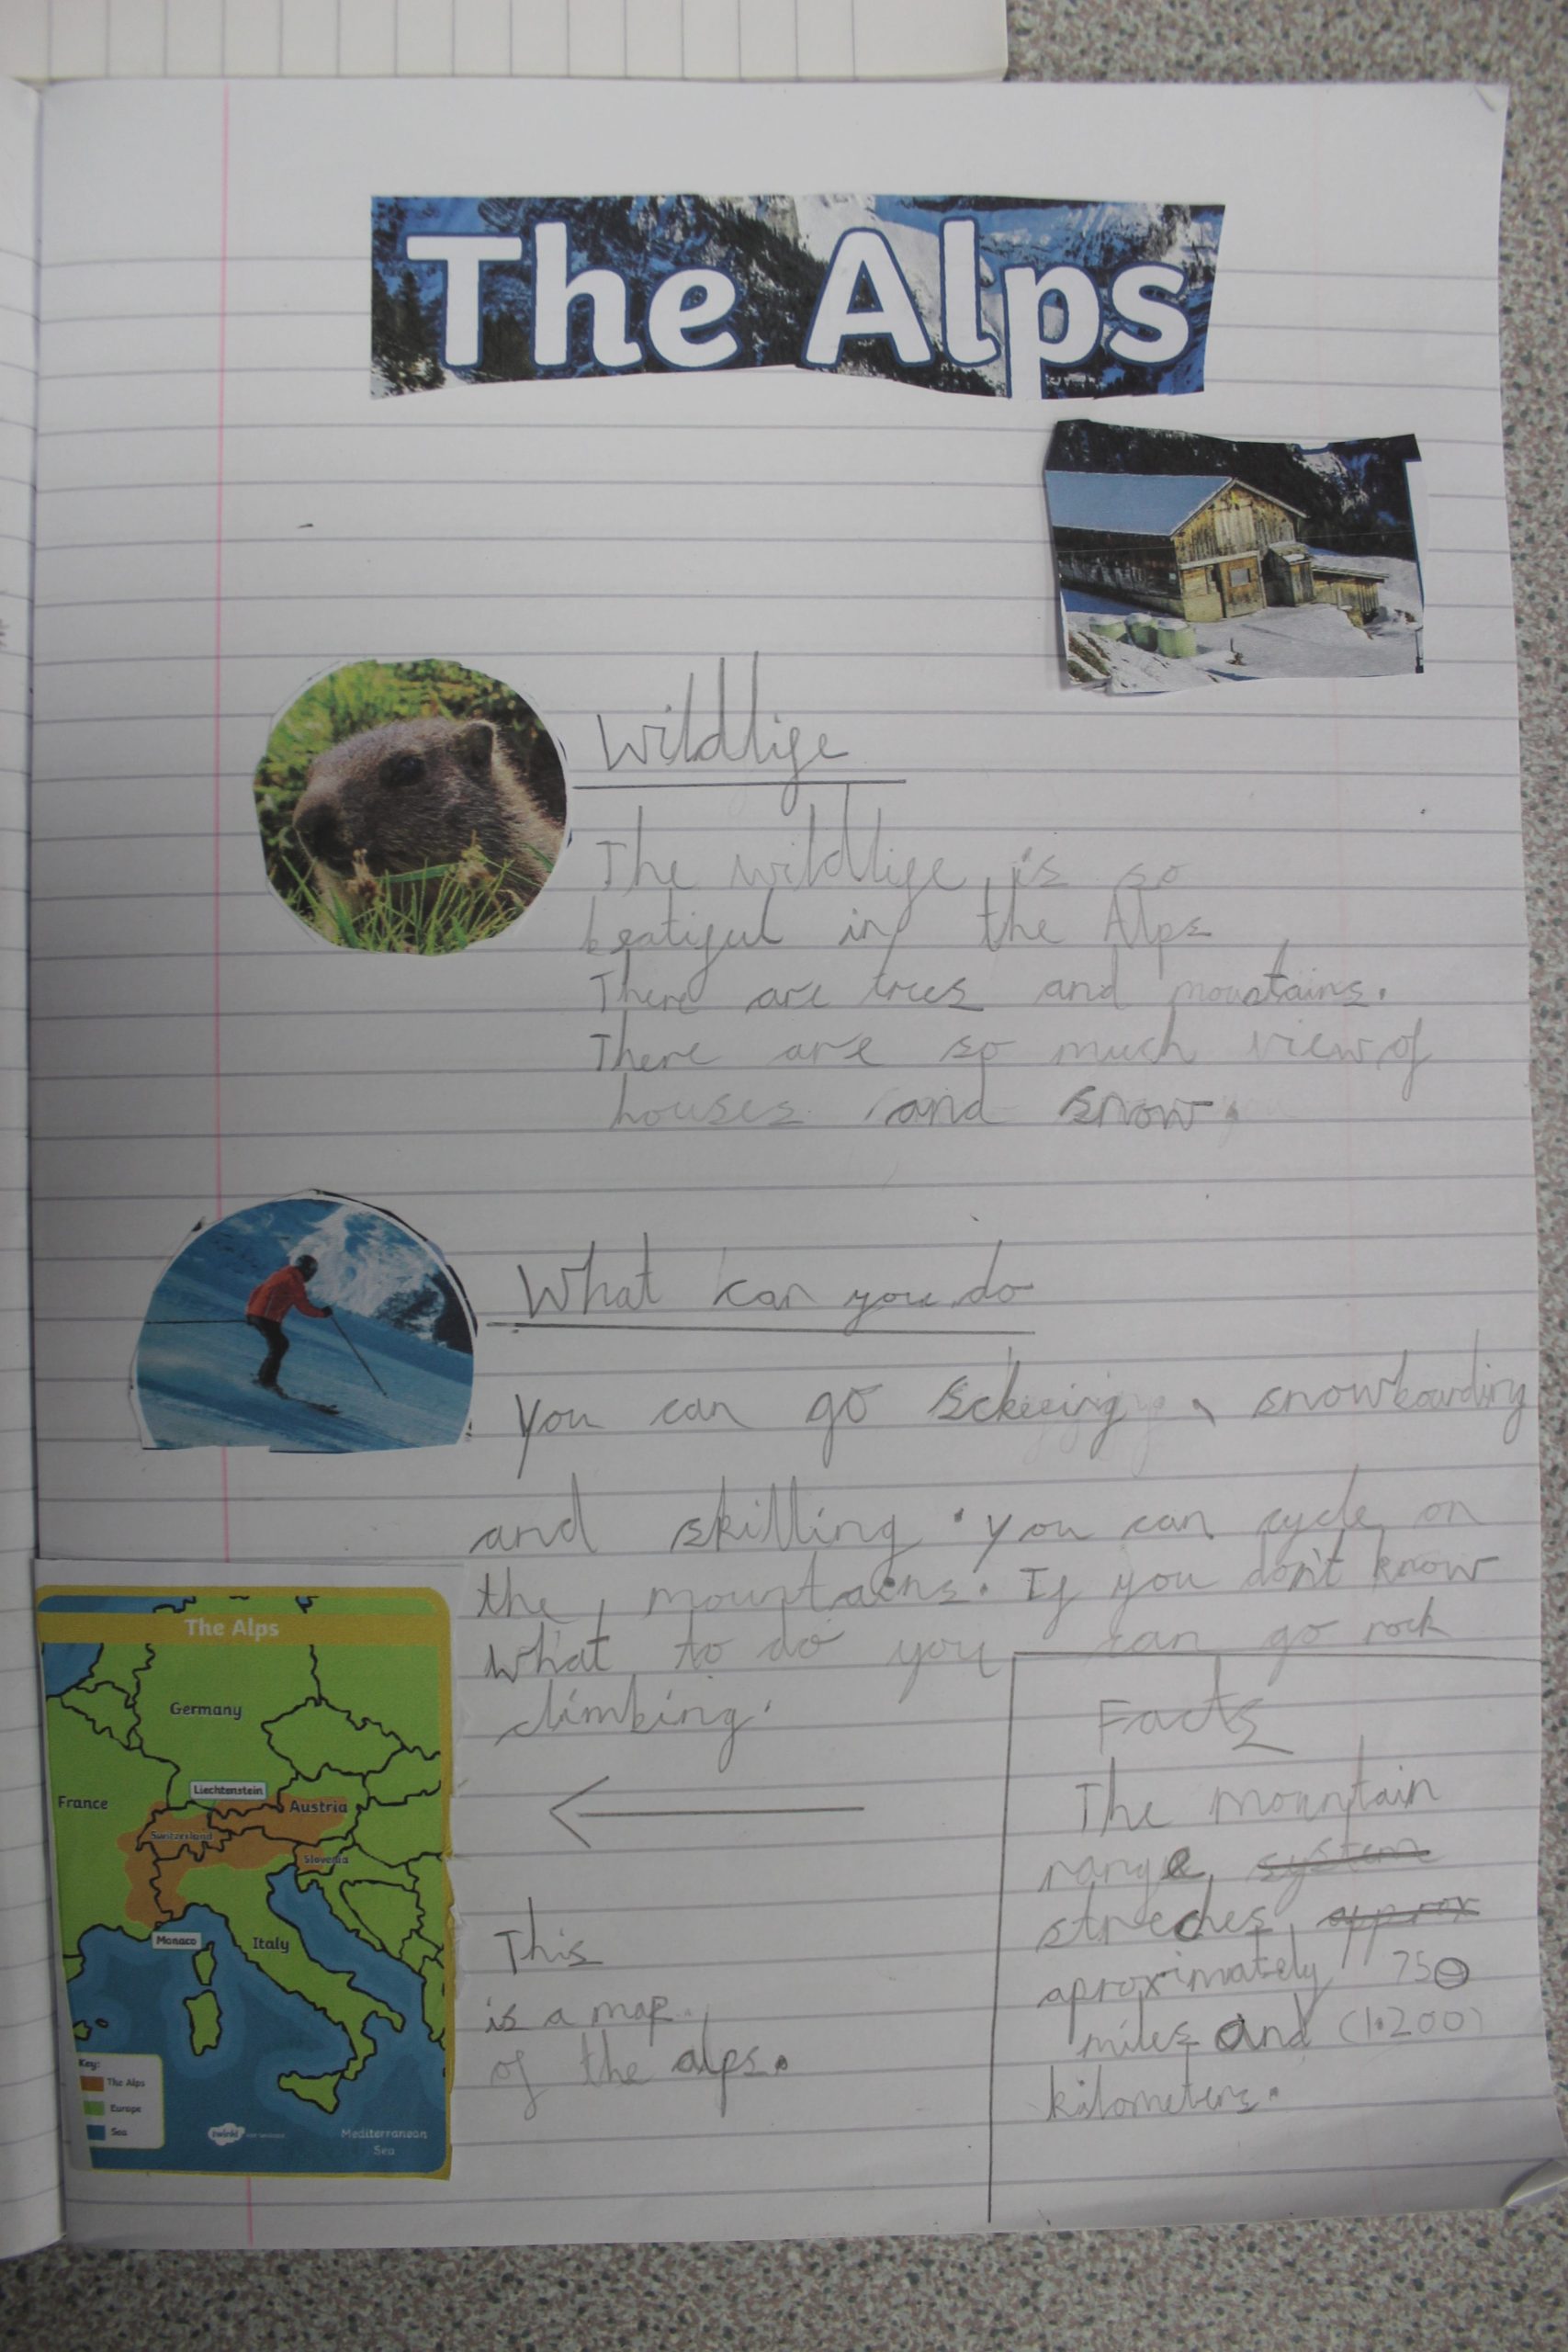 The Alps
Wildlife
The wildlife is so
beatiful in the Alps
There are trees and mountains.
There are so much view of
houses and snow.
What can you do
You can go sckeeing, snowboarding
and skilling. You can cycle on
the mountains. If you don't know
what to do you can go rock
climbing.
The Alps
Germany
Liechtenstein
France
Austria
Switzerland
Slovenia
Monaco
Italy
Key:
The Alps
Europe
Sea
twinkl
Mediterranean
Sea
This
is a map
of the alps.
Facts
The mountain
range system
streches approx
aproximately 750
miles and (1.200)
kilometers.